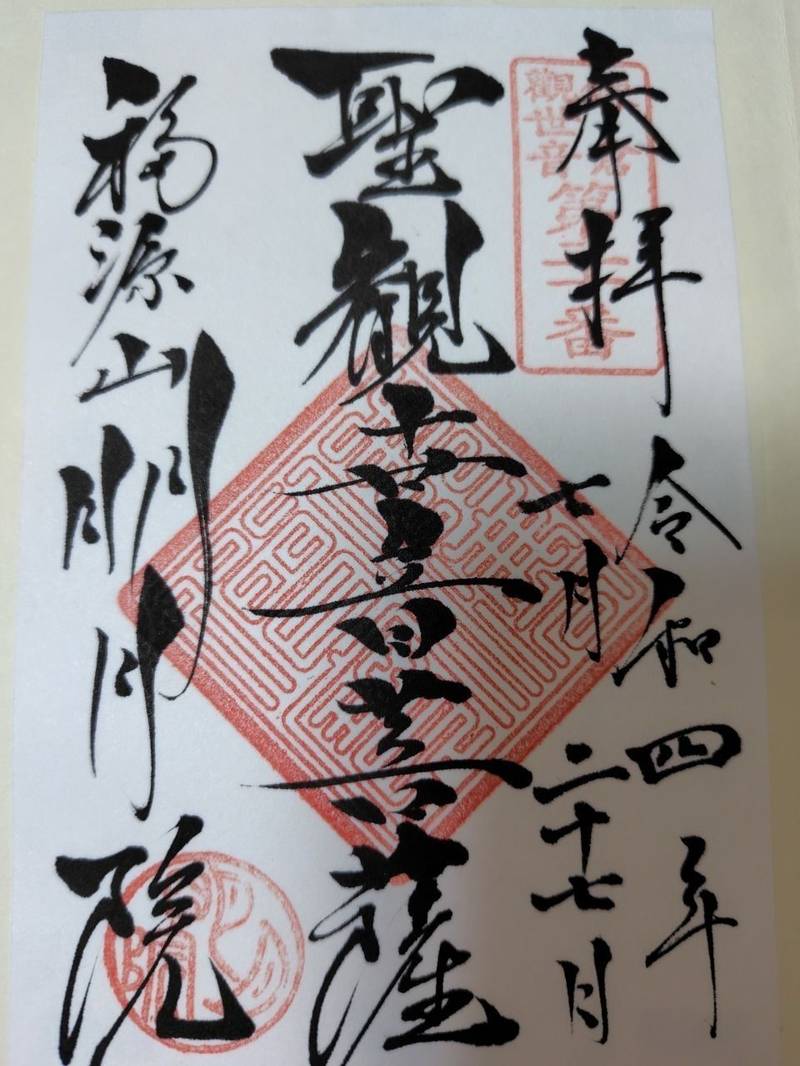 奉拝
令和四年
七月二十七日
觀世音
第三十番
聖観世音菩薩
福源山明月院